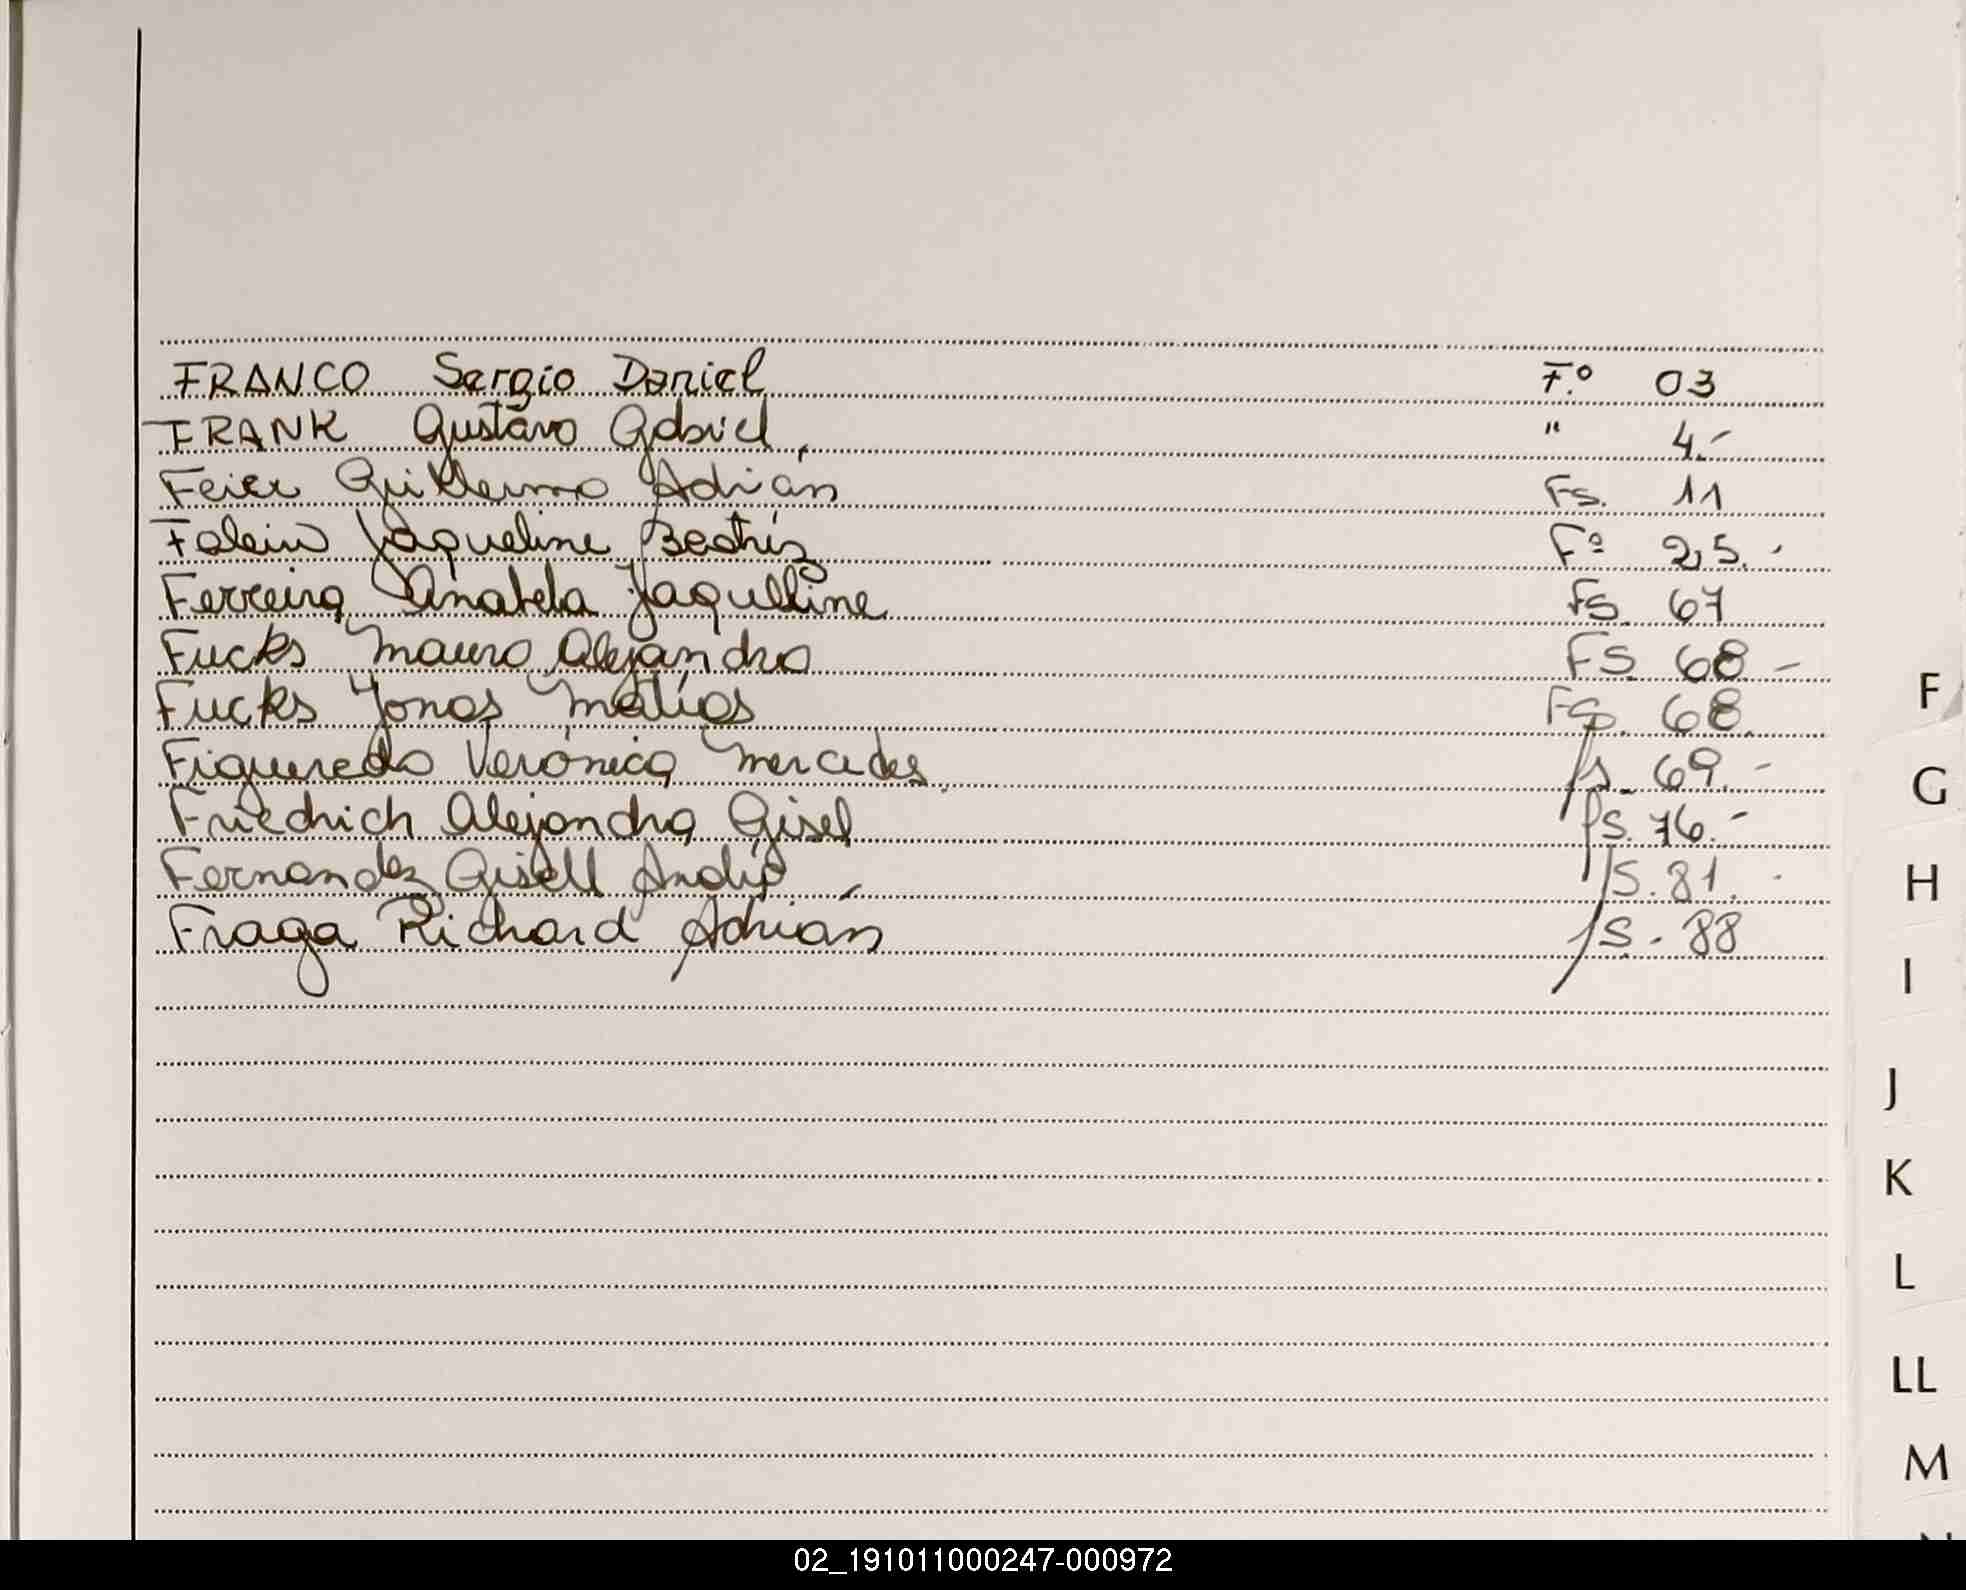 FRANCO Sergio Daniel F.º 03
FRANK Gustavo Gabriel, " 4.-
Feier Guillermo Adrián Fs. 11
Jaqueline Beatriz Fº 25.-
Ferreira Anabela Jaquelline Fs 67
Fucks Mauro Alejandro FS. 68 -
Fucks Jonas Matías Fs. 68.
Figueredo Verónica Mercedes. fs. 69.-
Friedrich Alejandra Gisel fs. 76.-
Fernandez Gisell fs. 81.-
Fraga Richard Adrián fs. - 88
F
G
H
I
J
K
L
LL
M
02_191011000247-000972